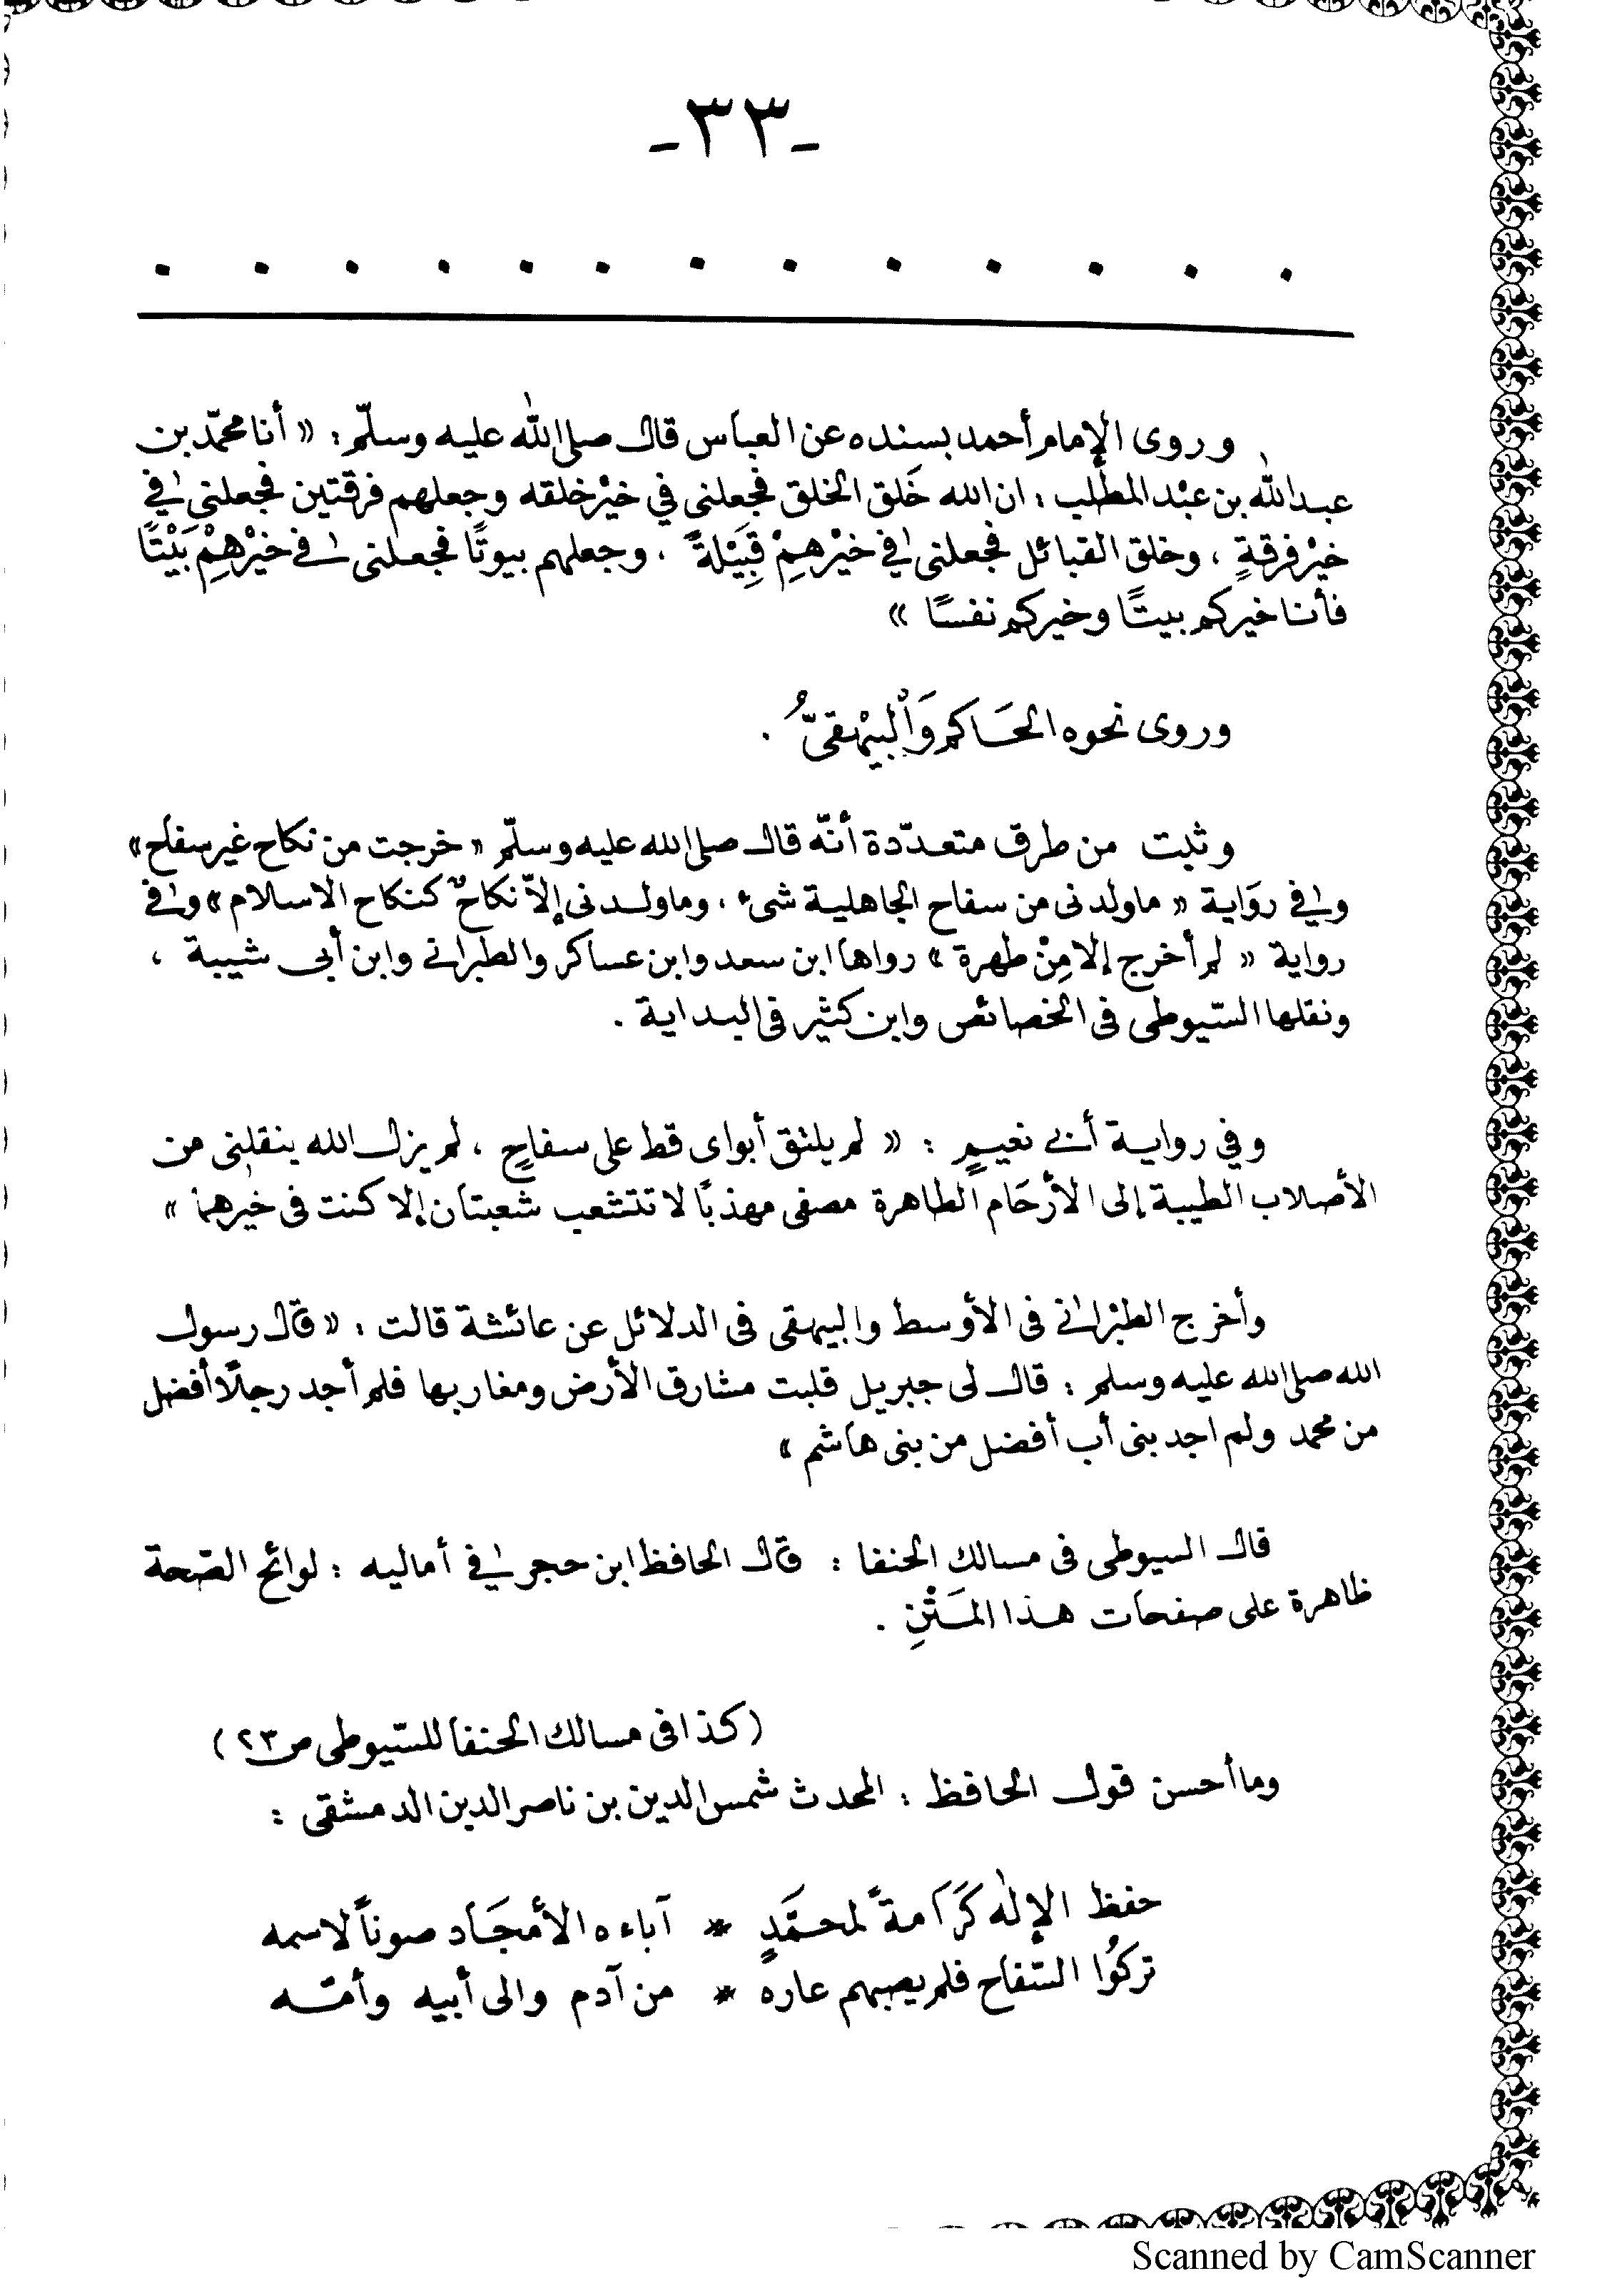 -٣٣-
. . . . . . . . . . . . .
وروى الإمام أحمد بسنده عن العباس قال صلى الله عليه وسلّم: « أنا محمّد بن
عبد الله بن عبْد المطّلب : ان الله خَلق الخلق فجعلنى في خيْر خلقه وجعلهم فرقتين فجعلنى في
خيْر فرقةٍ ، وخلق القبائل فجعلنى في خيْرهِمْ قَبِيْلةً ، وجعلهم بيوتًا فجعلنى في خيْرهِمْ بَيْتًا
فأنا خيركم بيتًا وخيركم نفسًا »
وروى نحوه الحَاكم وَالْبيْهقىُّ .
وثبت من طرق متعدّدة أنّه قال صلى الله عليه وسلّم « خرجت من نكاح غير سفاح »
وفي روَاية « ما ولدنى من سفاح الجاهلية شىء ، وما ولدنى إلاّ نكاحٌ كنكاح الاسلام » وفي
رواية « لم أخرج إلا مِنْ طهرة » رواها ابن سعد وابن عساكر والطبرانى وابن أبى شيبة ،
ونقلها السّيوطى فى الخصائص وابن كثير فى البداية .
وفي رواية أبى نعيمٍ : « لم يلتق أبواى قط على سفاحٍ ، لم يزل الله ينقلنى من
الأصلاب الطيبة إلى الأرْحَام الطاهرة مصفى مهذبًا لا تتشعب شعبتان إلا كنت فى خيرهما »
وأخرج الطبْرانى فى الأوسط والبيهقى فى الدلائل عن عائشة قالت : « قال رسول
الله صلى الله عليه وسلم : قال لى جبريل قلبت مشارق الأرض ومغاربها فلم أجد رجلًا أفضل
من محمد ولم اجد بنى أب أفضل من بنى هاشم »
قال السيوطى فى مسالك الحنفا : قال الحافظ ابن حجر في أماليه : لوائح الصّحة
ظاهرة على صفحات هذا المَتْنِ .
(كذا فى مسالك الحنفا للسّيوطى ص ٢٣)
وما أحسن قول الحافظ : المحدث شمس الدين بن ناصر الدين الدمشقى :
حفظ الإلٰه كَرَامةً لمحمَّدٍ * آباءه الأمجَاد صوناً لاسمه
تركُوا السّفاح فلم يصبهم عاره * من آدم والى أبيه وأمّه
Scanned by CamScanner